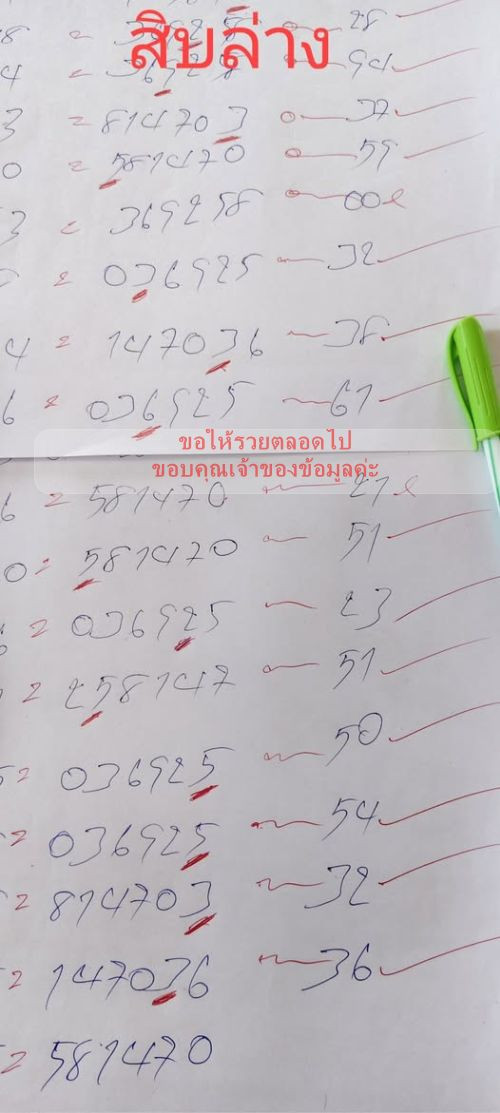 สิบล่าง
8 = 369258 28
4 = 36925 94
3 = 814703 37
0 = 581470 59
3 = 369258 00
= 036925 32
4 = 147036 38
6 = 036925 61
ขอให้รวยตลอดไป
ขอบคุณเจ้าของข้อมูลค่ะ
6 = 581470 21
0 = 581470 51
= 036925 23
= 258147 51
= 036925 50
= 036925 54
= 814703 32
= 147036 36
= 581470